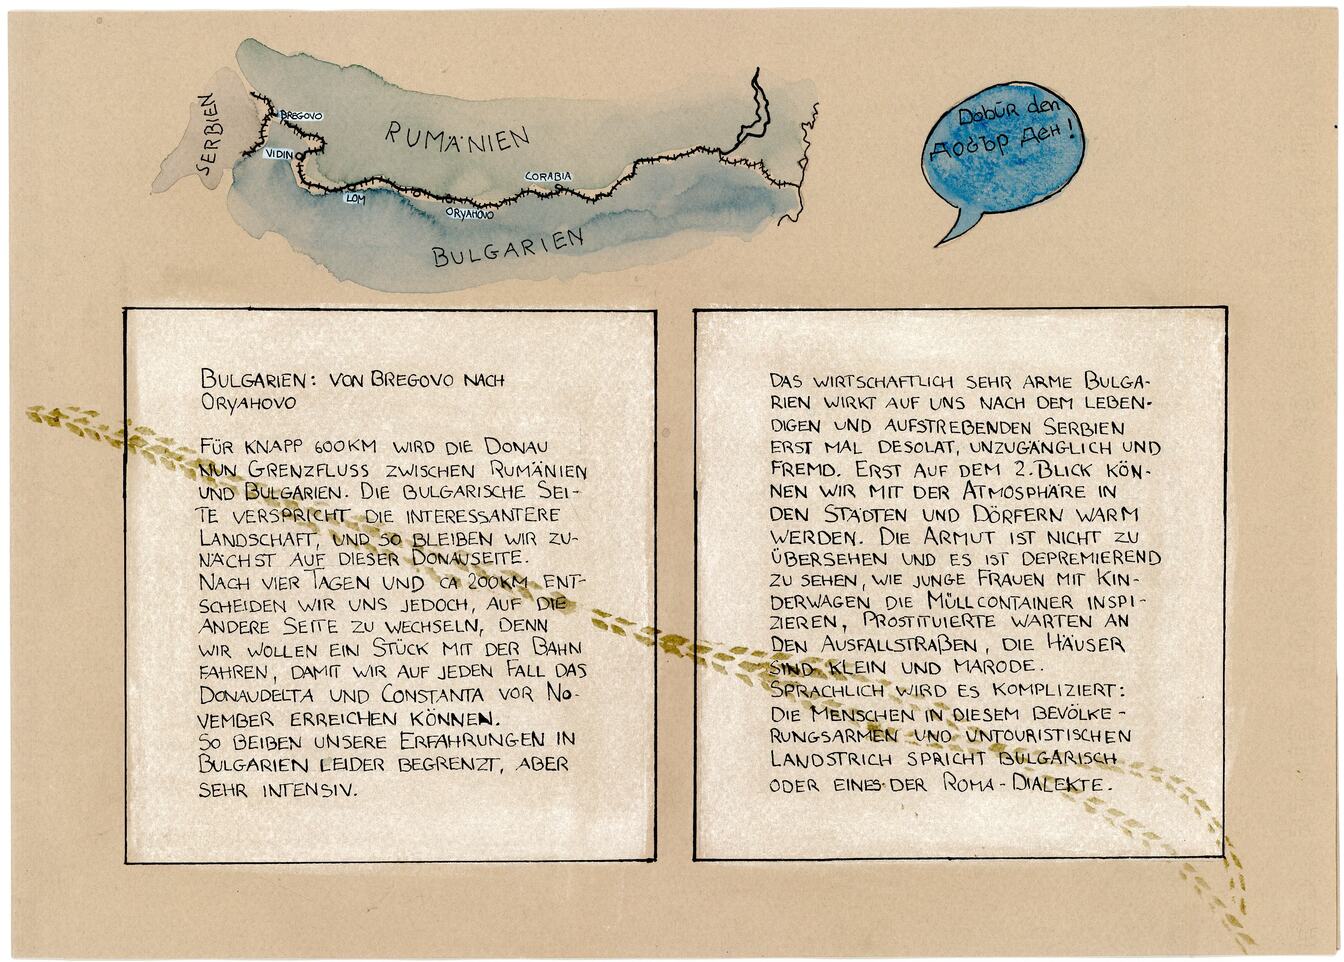 SERBIEN
BREGOVO
VIDIN
RUMÄNIEN
LOM
CORABIA
ORYAHOVO
BULGARIEN
Dobūr den
добър ден!
BULGARIEN: VON BREGOVO NACH
ORYAHOVO
FÜR KNAPP 600KM WIRD DIE DONAU
NUN GRENZFLUSS ZWISCHEN RUMÄNIEN
UND BULGARIEN. DIE BULGARISCHE SEI-
TE VERSPRICHT DIE INTERESSANTERE
LANDSCHAFT, UND SO BLEIBEN WIR ZU-
NÄCHST AUF DIESER DONAUSEITE.
NACH VIER TAGEN UND CA 200KM ENT-
SCHEIDEN WIR UNS JEDOCH, AUF DIE
ANDERE SEITE ZU WECHSELN, DENN
WIR WOLLEN EIN STÜCK MIT DER BAHN
FAHREN, DAMIT WIR AUF JEDEN FALL DAS
DONAUDELTA UND CONSTANTA VOR NO-
VEMBER ERREICHEN KÖNNEN.
SO BEIBEN UNSERE ERFAHRUNGEN IN
BULGARIEN LEIDER BEGRENZT, ABER
SEHR INTENSIV.
DAS WIRTSCHAFTLICH SEHR ARME BULGA-
RIEN WIRKT AUF UNS NACH DEM LEBEN-
DIGEN UND AUFSTREBENDEN SERBIEN
ERST MAL DESOLAT, UNZUGÄNGLICH UND
FREMD. ERST AUF DEM 2. BLICK KÖN-
NEN WIR MIT DER ATMOSPHÄRE IN
DEN STÄDTEN UND DÖRFERN WARM
WERDEN. DIE ARMUT IST NICHT ZU
ÜBERSEHEN UND ES IST DEPREMIEREND
ZU SEHEN, WIE JUNGE FRAUEN MIT KIN-
DERWAGEN DIE MÜLLCONTAINER INSPI-
ZIEREN, PROSTITUIERTE WARTEN AN
DEN AUSFALLSTRAßEN, DIE HÄUSER
SIND KLEIN UND MARODE.
SPRACHLICH WIRD ES KOMPLIZIERT:
DIE MENSCHEN IN DIESEM BEVÖLKE-
RUNGSARMEN UND UNTOURISTISCHEN
LANDSTRICH SPRICHT BULGARISCH
ODER EINES DER ROMA-DIALEKTE.